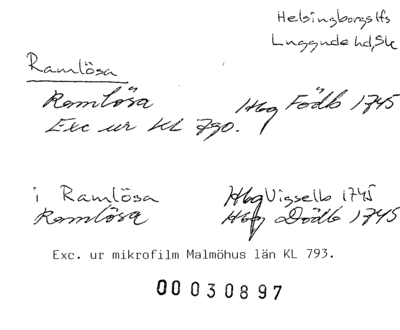 Helsingborgs lfs
Luggude hd, Sk
Ramlösa
Ramlösa Hbg Födb 1745
Exc ur KL 790.
i Ramlösa Hbg Vigselb 1745
Ramlösa Hbg Dödb 1745
Exc. ur mikrofilm Malmöhus län KL 793.
00030897